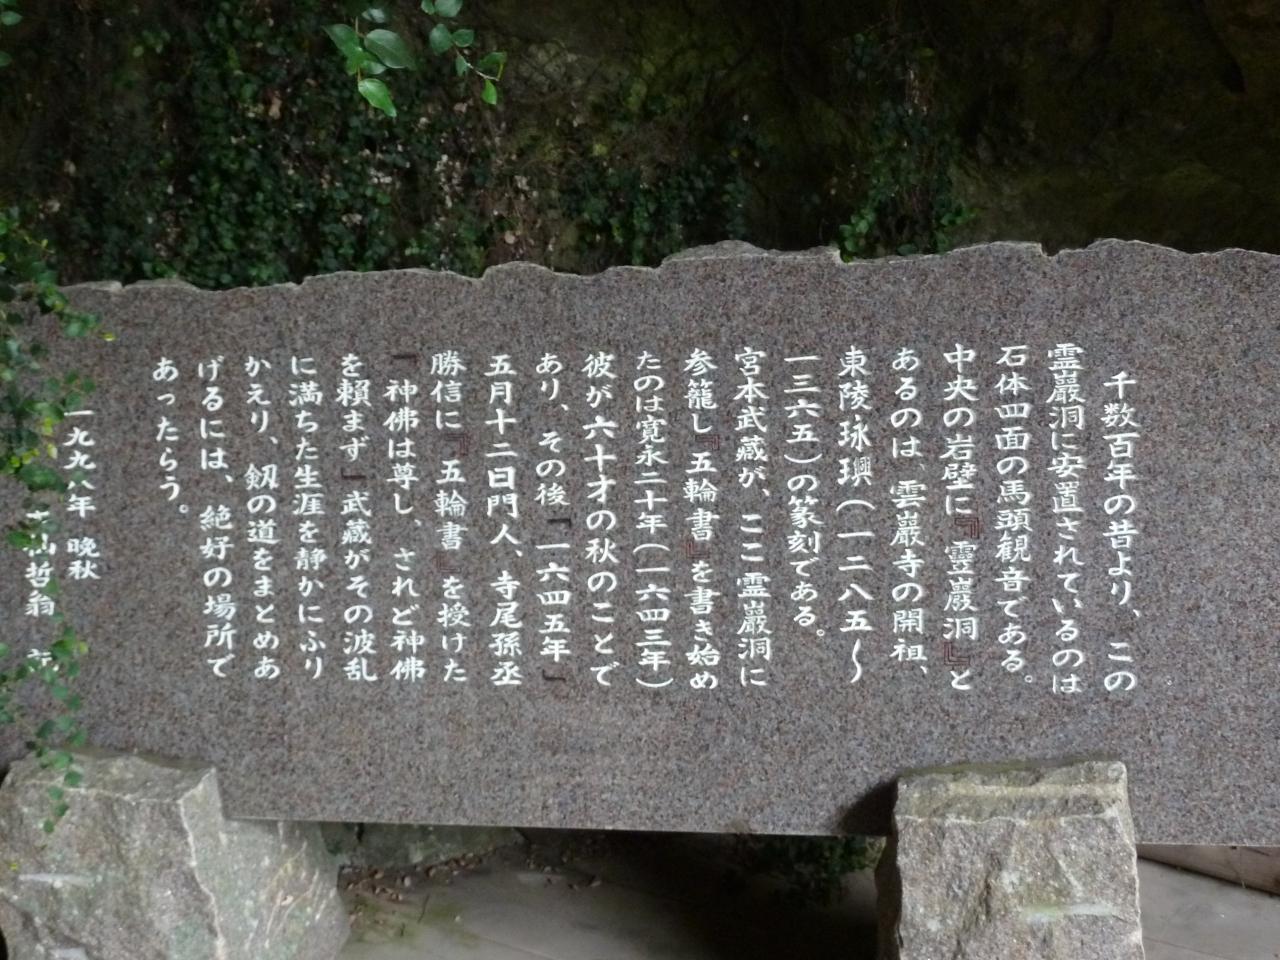 千数百年の昔より、この
霊巖洞に安置されているのは
石体四面の馬頭観音である。
中央の岩壁に『靈巌洞』と
あるのは、雲巌寺の開祖、
東陵・永璵（一二八五〜
一三六五）の篆刻である。
宮本武藏が、ここ霊巖洞に
参籠し『五輪書』を書き始め
たのは寛永二十年（一六四三年）
彼が六十才の秋のことで
あり、その後「一六四五年」
五月十二日門人、寺尾孫丞
勝信に『五輪書』を授けた
「神佛は尊し、されど神佛
を頼まず」武藏がその波乱
に満ちた生涯を静かにふり
かえり、剱の道をまとめあ
げるには、絶好の場所で
あったらう。
一九九八年 晩秋
仙哲翁